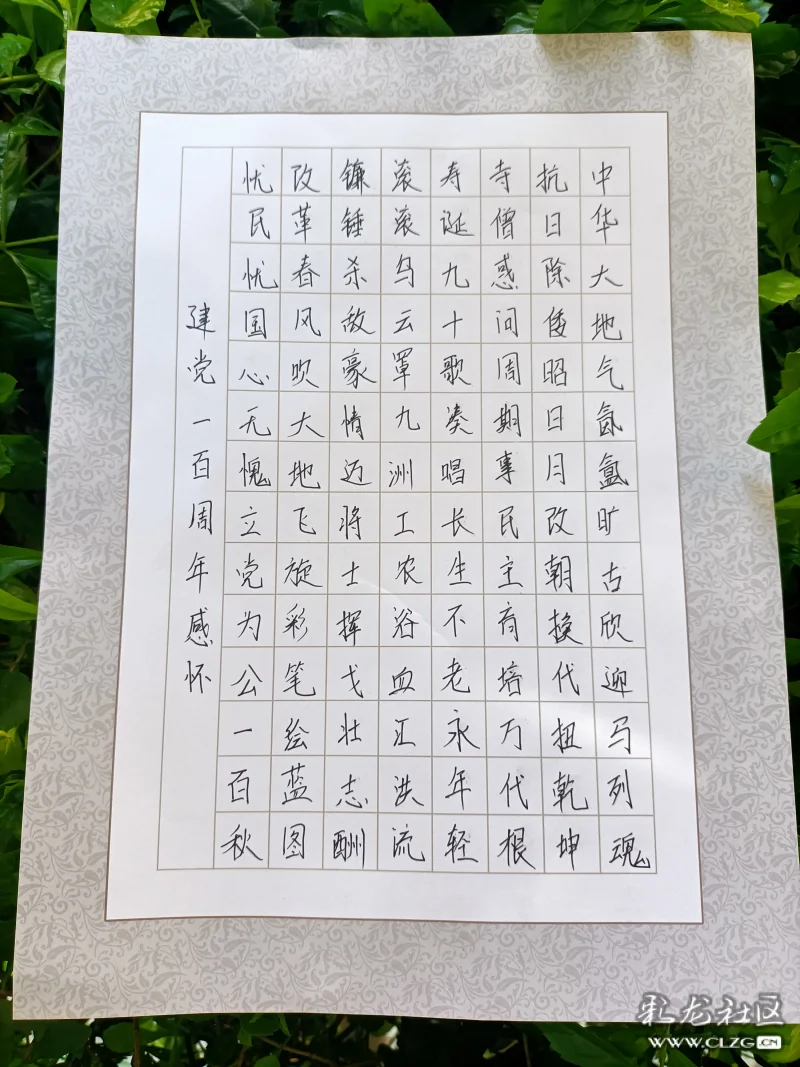 中华大地气氤氲旷古欣迎马列魂
抗日除倭昭日月改朝换代扭乾坤
寺僧惑问周期事民主育培万代根
寿诞九十歌凑唱长生不老永年轻
滚滚乌云罩九洲工农浴血汇洪流
镰锤杀敌豪情迈将士挥戈壮志酬
改革春风吹大地飞旋彩笔绘蓝图
忧民忧国心无愧立党为公一百秋
建党一百周年感怀
彩龙社区
WWW.CLZG.CN